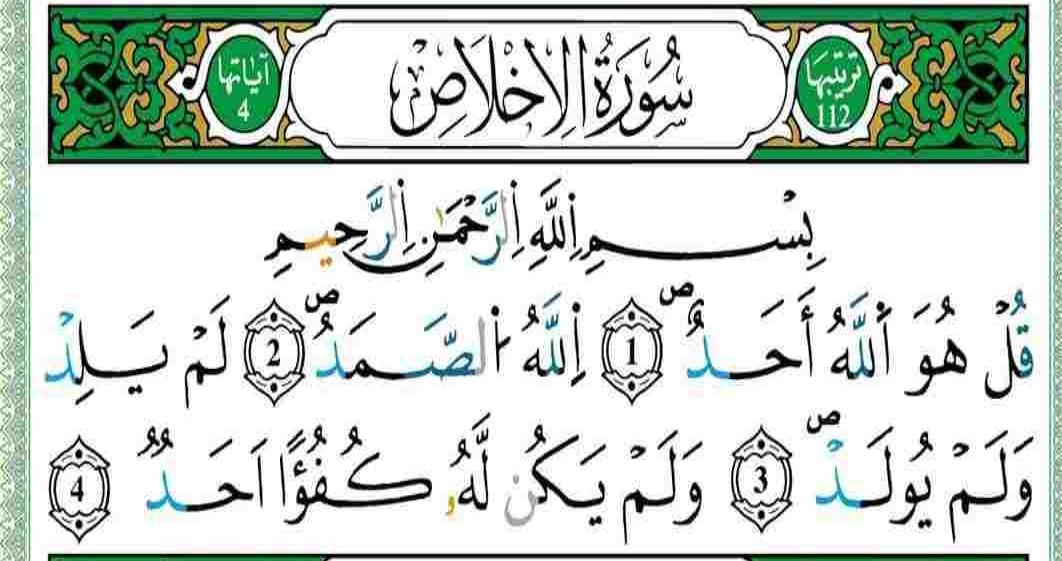 ترتيبها 112
سُورَةُ الإِخْلَاصِ
آياتها 4
بِسْمِ اللَّهِ الرَّحْمَٰنِ الرَّحِيمِ
قُلْ هُوَ اللَّهُ أَحَدٌ ۖ 1 اللَّهُ الصَّمَدُ ۖ 2 لَمْ يَلِدْ
وَلَمْ يُولَدْ ۖ 3 وَلَمْ يَكُن لَّهُۥ كُفُؤًا اَحَدٌ 4